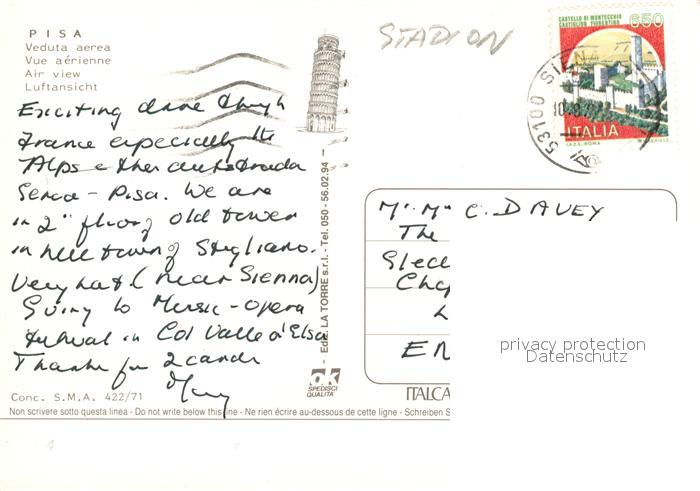 PISA
Veduta aerea
Vue aérienne
Air view
Luftansicht
Exciting drive through
France especially the
Alps & the autostrada
Genoa - Pisa. We are
in 2nd floor of old tower
in hill town of Stigliano.
Very hot (near Sienna)
Going to Music - Opera
festival in Col Valle d'Elsa
Thanks for 2 cards
Mary
Conc. S.M.A. 422/71
Non scrivere sotto questa linea - Do not write below this line - Ne rien écrire au-dessous de cette ligne - Schreiben S
- Ediz. LA TORRE s.r.l. - Tel. 050 - 56.02.94 -
ok
SPEDISCI
QUALITA
STADION
CASTELLO DI MONTECCHIO
CASTIGLION FIORENTINO
650
ITALIA
I.P.Z.S. - ROMA
53100 SIENA
Mr. Mrs C. DAVEY
The
Glec
Cha
L
EN
privacy protection
Datenschutz
ITALCA